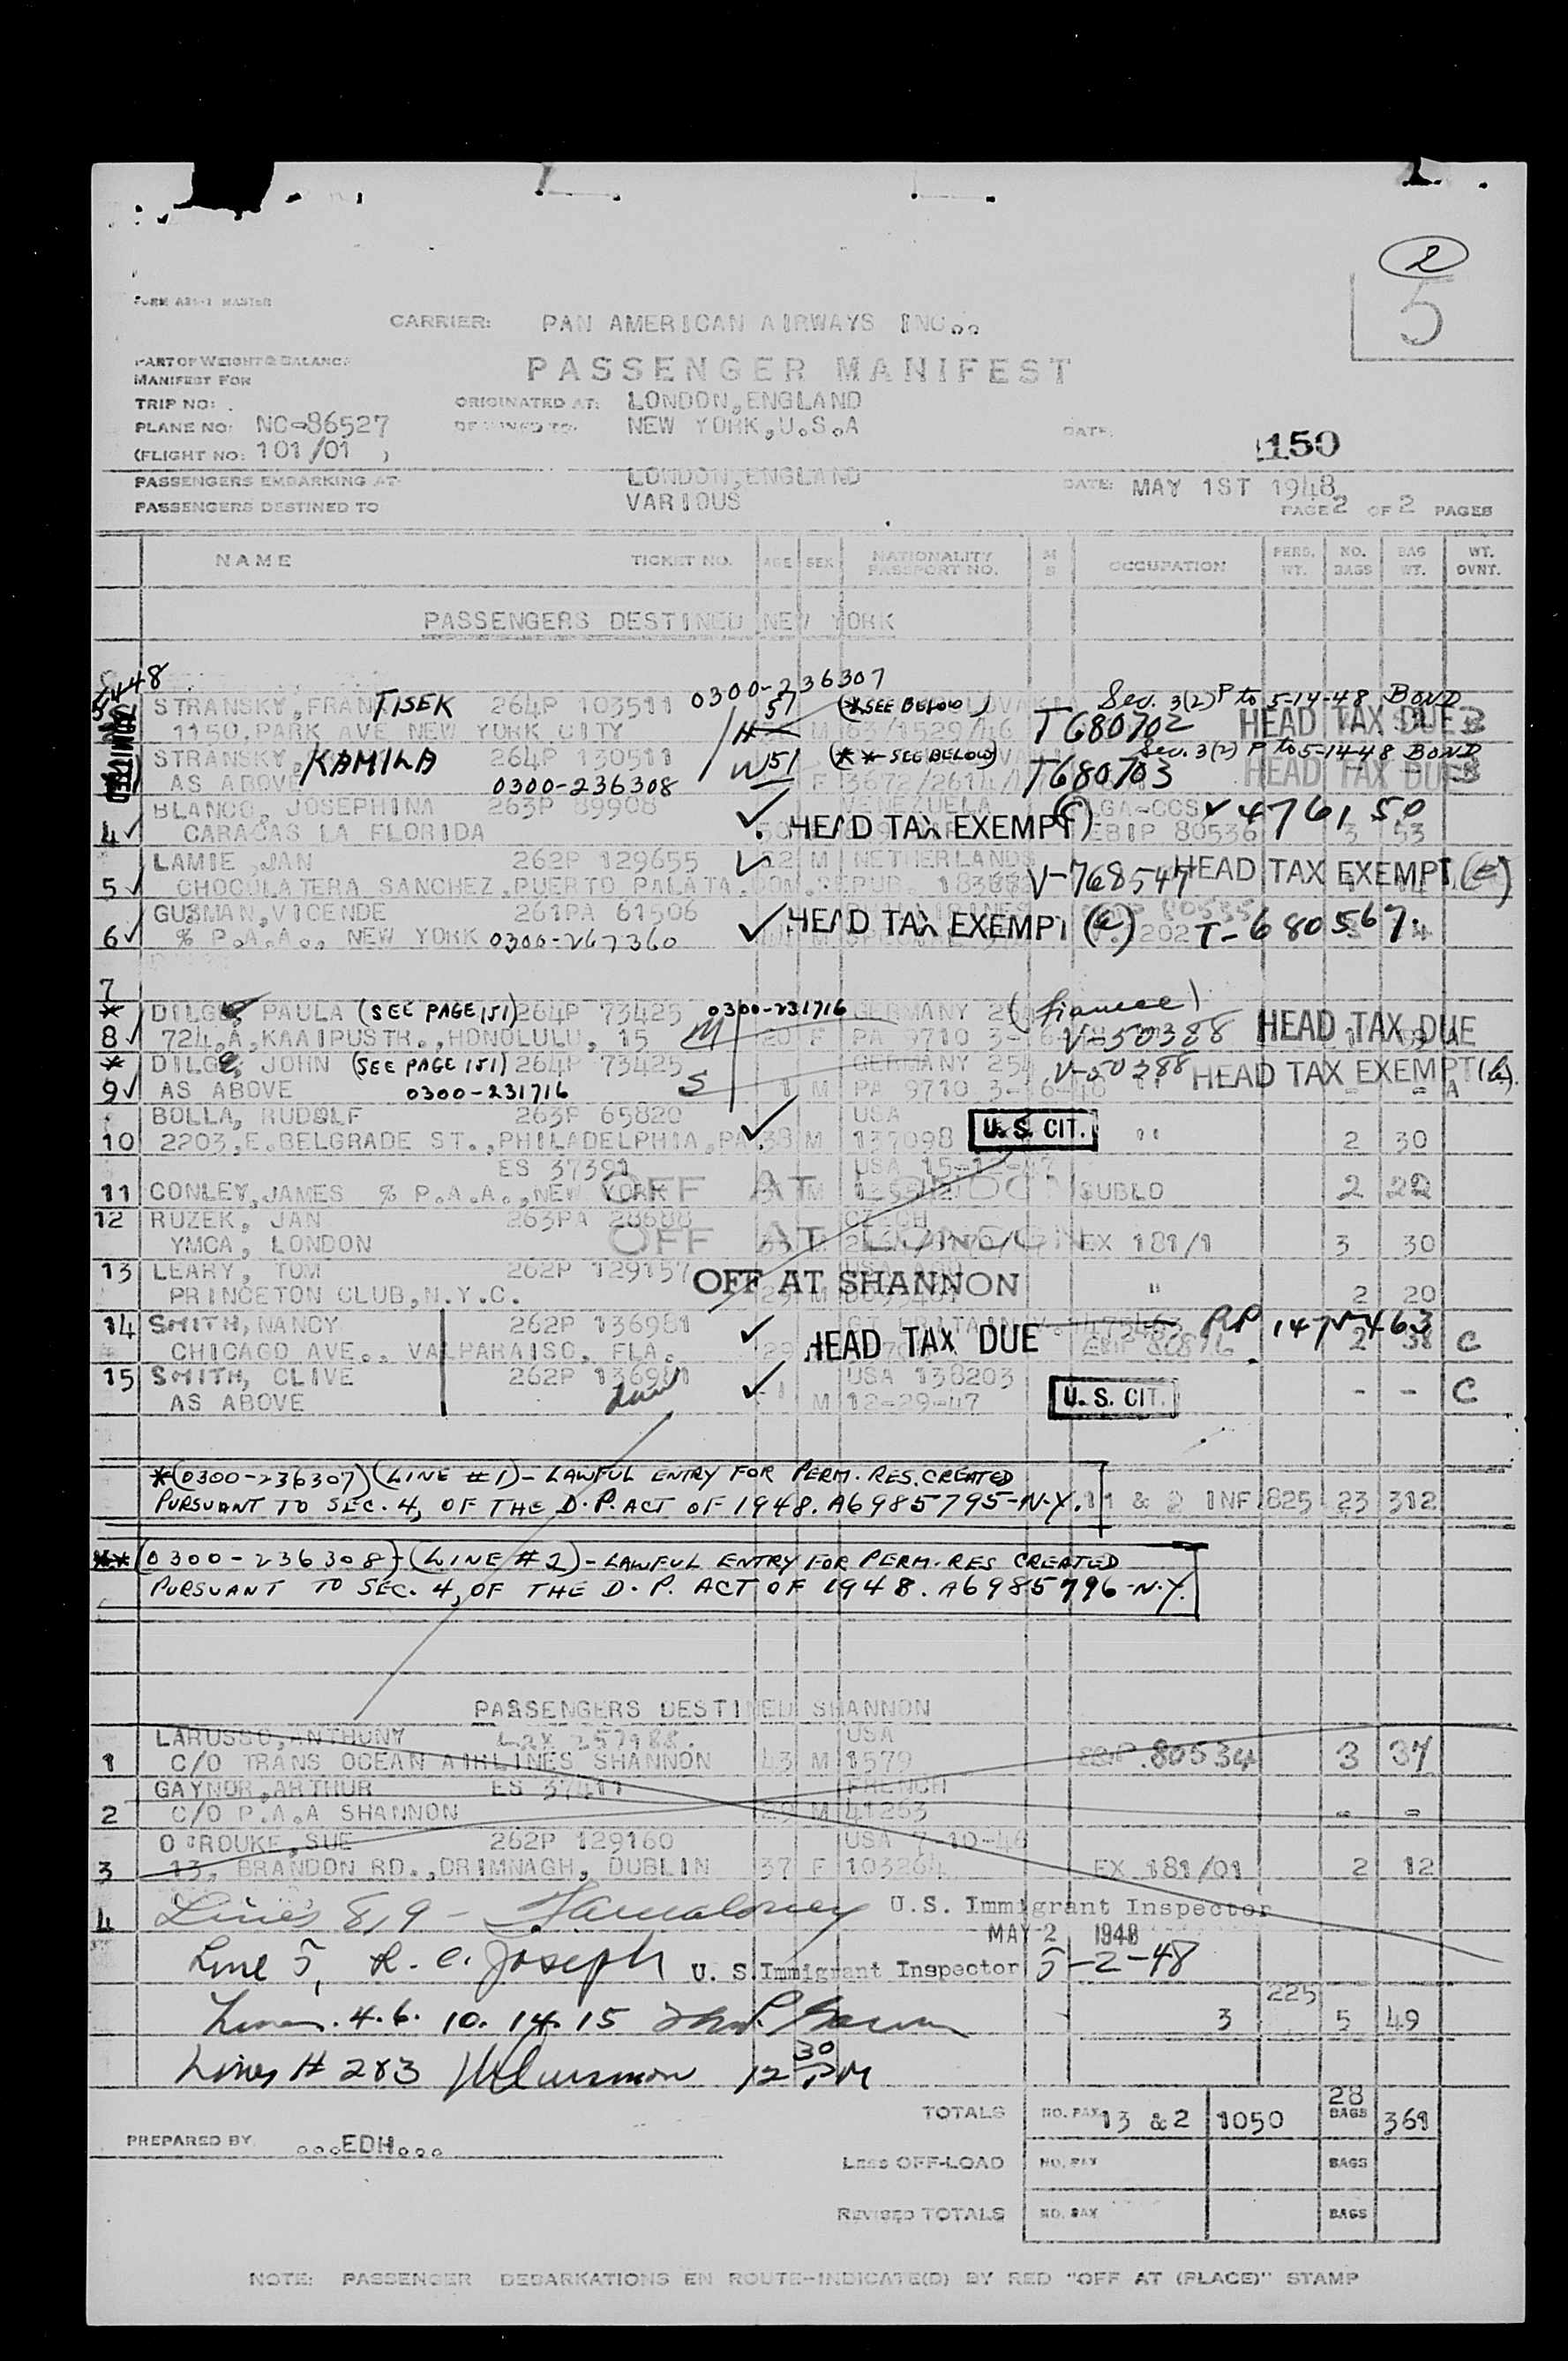 2
5
FORM A21-1 MASTER
CARRIER: PAN AMERICAN AIRWAYS INC..
PART OF WEIGHT & BALANCE
MANIFEST FOR
PASSENGER MANIFEST
TRIP NO:
ORIGINATED AT: LONDON,ENGLAND
PLANE NO: NC-86527
NEW YORK,U.S.A
DATE:
150
(FLIGHT NO: 101/01 )
PASSENGERS EMBARKING AT: LONDON,ENGLAND
DATE: MAY 1ST 1948
PASSENGERS DESTINED TO VARIOUS
PAGE 2 OF 2 PAGES
NAME TICKET NO. AGE SEX NATIONALITY PASSPORT NO. M S OCCUPATION PERS. WT. NO. BAGS BAG WT. WT. OVNT.
PASSENGERS DESTINED NEW YORK
0300-236307
ADMITTED
STRANSKY, TISEK 264P 103511 51 (*SEE BELOW) Sec. 3(2) P to 5-14-48 BOND
1150, PARK AVE NEW YORK CITY M 63/1529/46 T680702 HEAD TAX DUE B
STRANSKY, KAMILA 264P 130511 W 51 (** SEE BELOW) Sec. 3(2) P to 5-14-48 BOND
AS ABOVE 0300-236308 F T680703 HEAD TAX DUE B
BLANCO, JOSEPHINA 263P 89908 VENEZUELA 4761,50
4 CARACAS LA FLORIDA HEAD TAX EXEMPT EBIP 80536 3 53
LAMIE ,JAN 262P 129655 22 M NETHERLANDS
5 CHOCOLATERA SANCHEZ,PUERTO PALATA,DOM.REPUB. V-768547 HEAD TAX EXEMPT (e)
GUZMAN,VICENDE 261PA 61506
6 % P.A.A., NEW YORK 0300-267360 HEAD TAX EXEMPT (e) T-680567.
7
* DILG PAULA (SEE PAGE 151) 264P 73425 0300-231716 GERMANY (fiancee)
8 724,A,KAAIPUSTR.,HONOLULU, 15 M 20 F PA 9710 V-50388 HEAD TAX DUE
* DILG JOHN (SEE PAGE 151) 264P 73425 GERMANY 254
9 AS ABOVE 0300-231716 S 1 M PA 9710 V-50388 HEAD TAX EXEMPT
BOLLA, RUDOLF 263P 65820 USA
10 2203,E.BELGRADE ST.,PHILADELPHIA,PA 38 M 137098 U.S. CIT. " 2 30
ES 37391 USA
11 CONLEY,JAMES % P.A.A.,NEW YORK OFF AT LONDON M SUBLO 2 22
12 RUZEK, JAN 263PA 28688 CZECH
YMCA, LONDON OFF AT LONDON EX 181/1 3 30
13 LEARY, TOM 262P 129157
PRINCETON CLUB,N.Y.C. OFF AT SHANNON " 2 20
14 SMITH,NANCY 262P 136981 RP 1475463
CHICAGO AVE., VALPARAISO, FLA. 29 HEAD TAX DUE 2 38 C
15 SMITH, CLIVE 262P 136981 USA 138203
AS ABOVE M 12-29-47 U.S. CIT. - - C
*(0300-236307) (LINE #1) - LAWFUL ENTRY FOR PERM. RES. CREATED
PURSUANT TO SEC. 4, OF THE D.P. ACT OF 1948. A6985795-N.Y. 11 & 2 INF 825 23 312
**(0300-236308) - (LINE #2) - LAWFUL ENTRY FOR PERM. RES CREATED
PURSUANT TO SEC. 4, OF THE D.P. ACT OF 1948. A6985796-N.Y.
PASSENGERS DESTINED SHANNON
LARUSSO,ANTHONY USA
1 C/O TRANS OCEAN AIRLINES SHANNON 43 M 1579 80534 3 37
GAYNOR,ARTHUR ES 37411 FRENCH
2 C/O P.A.A SHANNON 29 M 41263 - -
O'ROUKE,SUE 262P 129160 USA 7-10-46
3 13, BRANDON RD.,DRIMNAGH, DUBLIN 37 F 103264 EX 181/01 2 12
4 Lines 8,9 - U.S. Immigrant Inspector
MAY 2 1948
Line 5, R. C. Joseph U. S. Immigrant Inspector 5-2-48
225
Lines. 4.6. 10. 14. 15 3 5 49
Lines # 2&3 12 30 PM
TOTALS NO. PAX 13 & 2 1050 28 BAGS 361
PREPARED BY ...EDH...
LESS OFF-LOAD NO. PAX BAGS
REVISED TOTALS NO. PAX BAGS
NOTE: PASSENGER DEBARKATIONS EN ROUTE-INDICATE(D) BY RED "OFF AT (PLACE)" STAMP